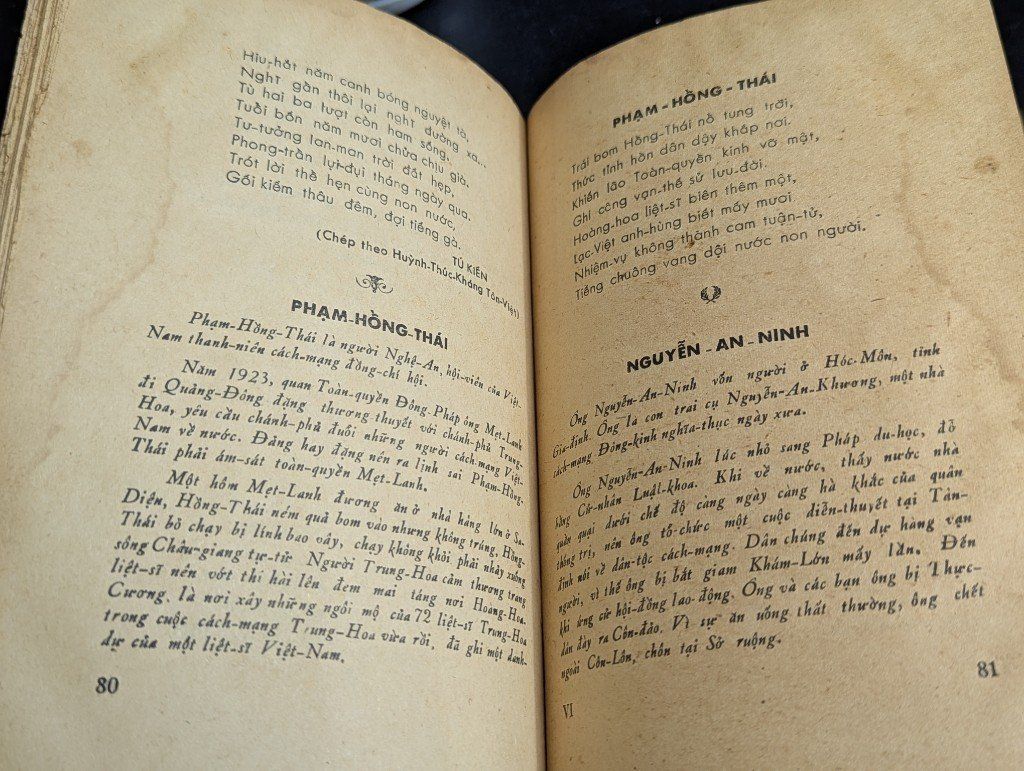 Hiu-hắt năm canh bóng nguyệt tà,
Nghĩ gần thôi lại nghĩ đường xa...
Tù hai ba tượt còn ham sống,
Tuổi bốn năm mươi chửa chịu già.
Tư-tưởng lan-man trời đất hẹp,
Phong-trần lụi-đụi tháng ngày qua.
Trót lời thề hẹn cùng non nước,
Gối kiếm thâu đêm, đợi tiếng gà.
TÚ KIÊN
(Chép theo Huỳnh-Thúc-Kháng Tôn-Việt)
PHẠM-HỒNG-THÁI
Phạm-Hồng-Thái là người Nghệ-An, hội-viên của Việt-
Nam thanh-niên cách-mạng đồng-chí hội.
Năm 1923, quan Toàn-quyền Đông-Pháp ông Mẹt-Lanh
đi Quảng-Đông đặng thương-thuyết với chánh-phủ Trung-
Hoa, yêu cầu chánh-phủ đuổi những người cách-mạng Việt-
Nam về nước. Đảng hay đặng nên ra lịnh sai Phạm-Hồng-
Thái phải ám-sát toàn-quyền Mẹt-Lanh.
Một hôm Mẹt-Lanh đương ăn ở nhà hàng lớn ở Sa-
Diện, Hồng-Thái ném quả bom vào nhưng không trúng, Hồng-
Thái bỏ chạy bị lính bao vây, chạy không khỏi phải nhảy xuống
sông Châu-giang tự-tử. Người Trung-Hoa cảm thương trang
liệt-sĩ nên vớt thi hài lên đem mai táng nơi Hoàng-Hoa-
Cương, là nơi xây những ngôi mộ của 72 liệt-sĩ Trung-Hoa
trong cuộc cách-mạng Trung-Hoa vừa rồi, đã ghi một danh-
dự của một liệt-sĩ Việt-Nam.
80
PHẠM-HỒNG-THÁI
Trái bom Hồng-Thái nổ tung trời,
Thức tỉnh hồn dân dậy khắp nơi,
Khiến lão Toàn-quyền kinh vỡ mật,
Ghi công vạn-thế sử lưu-đời.
Hoàng-hoa liệt-sĩ biên thêm một,
Lạc-Việt anh-hùng biết mấy mươi.
Nhiệm-vụ không thành cam tuận-tử,
Tiếng chuông vang dội nước non người.
NGUYỄN-AN-NINH
Ông Nguyễn-An-Ninh vốn người ở Hóc-Môn, tỉnh
Gia-định. Ông là con trai cụ Nguyễn-An-Khương, một nhà
cách-mạng Đông-kinh nghĩa-thục ngày xưa.
Ông Nguyễn-An-Ninh lúc nhỏ sang Pháp du-học, đỗ
bằng Cử-nhân Luật-khoa. Khi về nước, thấy nước nhà
quằn quại dưới chế độ càng ngày càng hà khắc của quân
thống trị, nên ông tổ-chức một cuộc diễn-thuyết tại Tân-
định nói về dân-tộc cách-mạng. Dân chúng đến dự hàng vạn
người, vì thế ông bị bắt giam Khám-Lớn mấy lần. Đến
khi ứng cử hội-đồng lao-động. Ông và các bạn ông bị Thực-
dân đày ra Côn-đảo. Vì sự ăn uống thất thường, ông chết
ngoài Côn-Lôn, chôn tại Sở ruộng.
VI
81